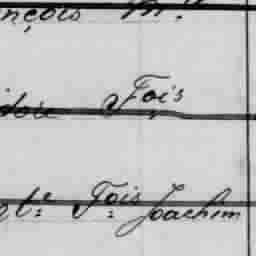 nçois M.
idore Fois
te Fois Joachim